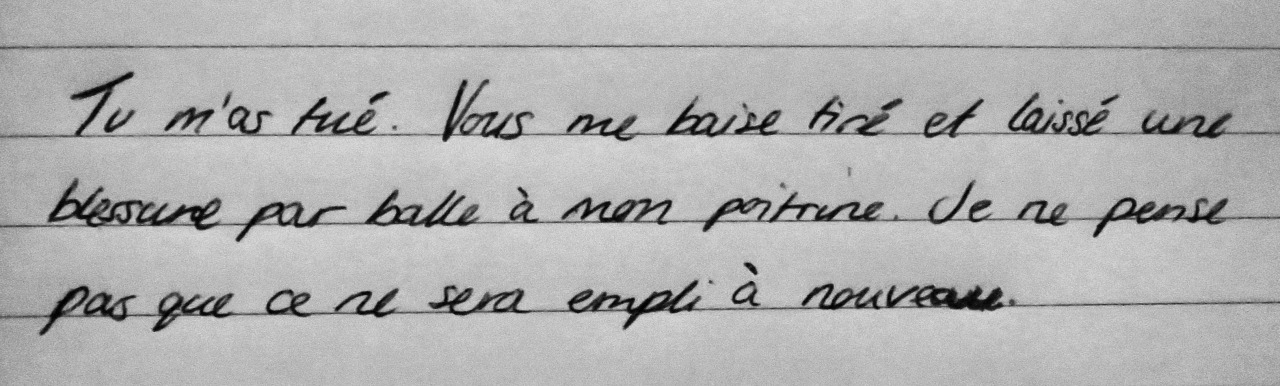 Tu m'as tué. Vous me baise tiré et laissé une
blessure par balle à mon poitrine. Je ne pense
pas que ce ne sera empli à nouveau.